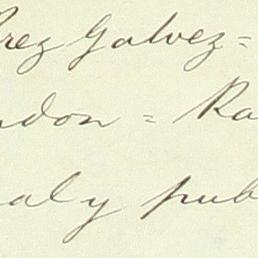 Prez Galvez =
ndon = Ra
aly pub